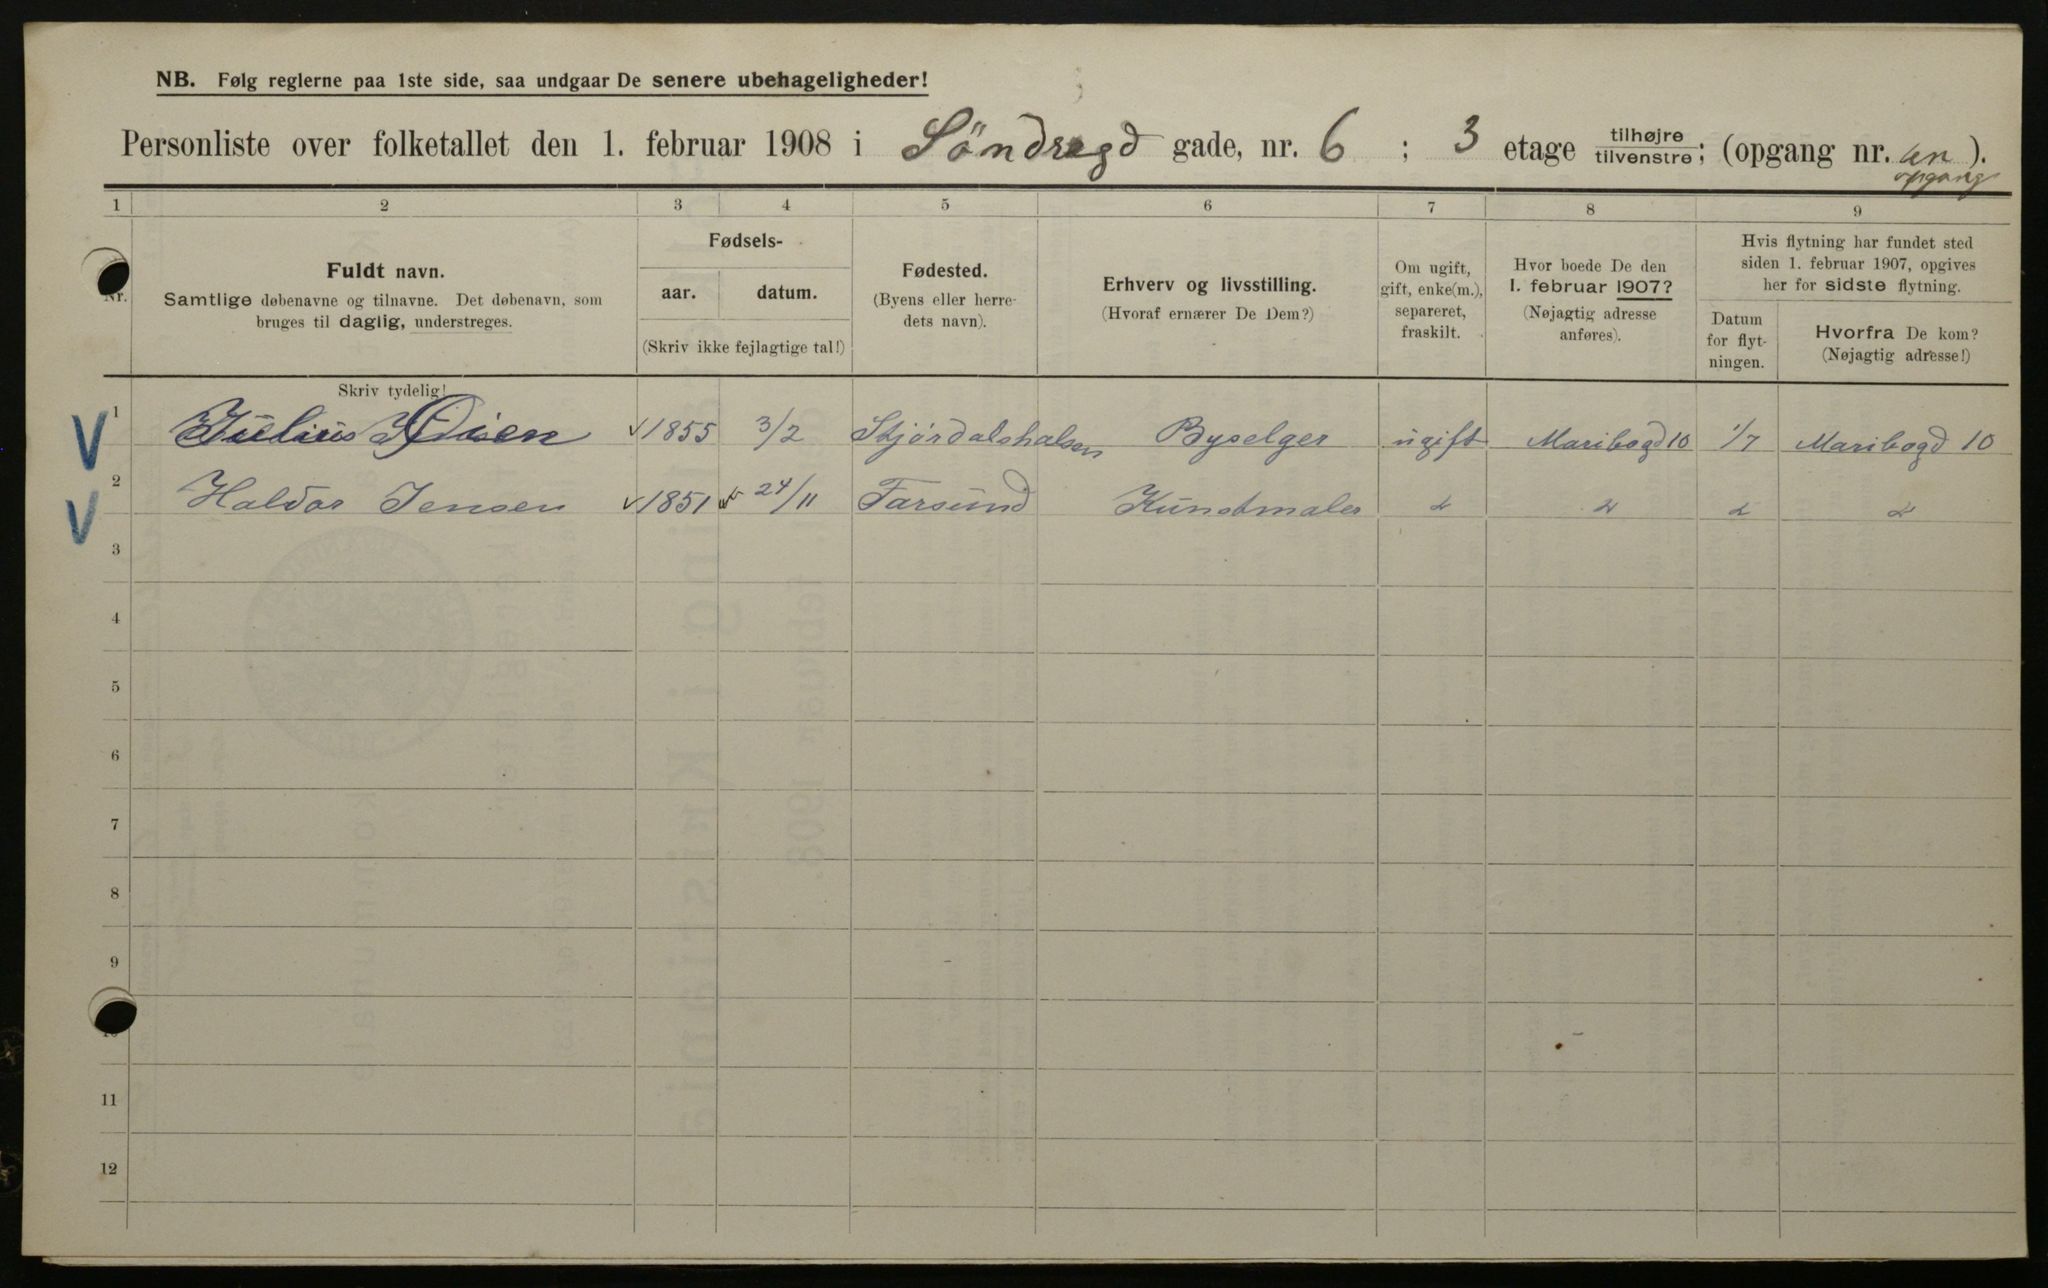 NB. Følg reglerne paa 1ste side, saa undgaar De senere ubehageligheder!
Personliste over folketallet den 1. februar 1908 i Söndregd gade, nr. 6 ; 3 etage tilhøjre tilvenstre; (opgang nr. en opgang ).
1 2 3 4 5 6 7 8 9
Nr.
Fuldt navn.
Samtlige døbenavne og tilnavne. Det døbenavn, som
bruges til daglig, understreges.
Fødsels-
aar. datum.
(Skriv ikke fejlagtige tal!)
Fødested.
(Byens eller herre-
dets navn).
Erhverv og livsstilling.
(Hvoraf ernærer De Dem?)
Om ugift,
gift, enke(m.),
separeret,
fraskilt.
Hvor boede De den
1. februar 1907?
(Nøjagtig adresse
anføres).
Hvis flytning har fundet sted
siden 1. februar 1907, opgives
her for sidste flytning.
Datum
for flyt-
ningen.
Hvorfra De kom?
(Nøjagtig adresse!)
Skriv tydelig!
V 1 Julius Disen √ 1855 3/2 Stjørdalshalsen Byselger ugift Maribogd 10 1/7 Maribogd 10
V 2 Haldor Jensen √ 1851 24/11 Farsund Kunstmaler " " " "
3
4
5
6
7
8
9
10
11
12